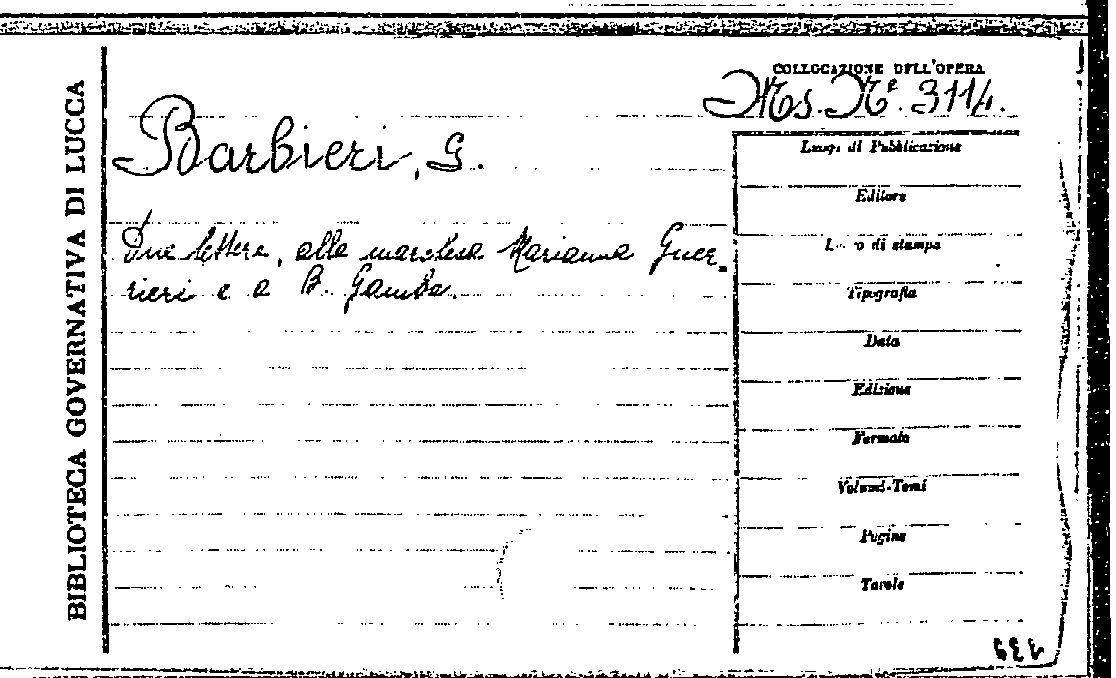 BIBLIOTECA GOVERNATIVA DI LUCCA
COLLOCAZIONE DELL'OPERA
Ms. N.º 3114.
Barbieri, G.
Due lettere, alla marchesa Marianna Guer-
rieri e a B. Gamba.
Luogo di Pubblicazione
Editore
di stampa
Tipografia
Data
Edizione
Formato
Volumi-Tomi
Pagine
Tavole